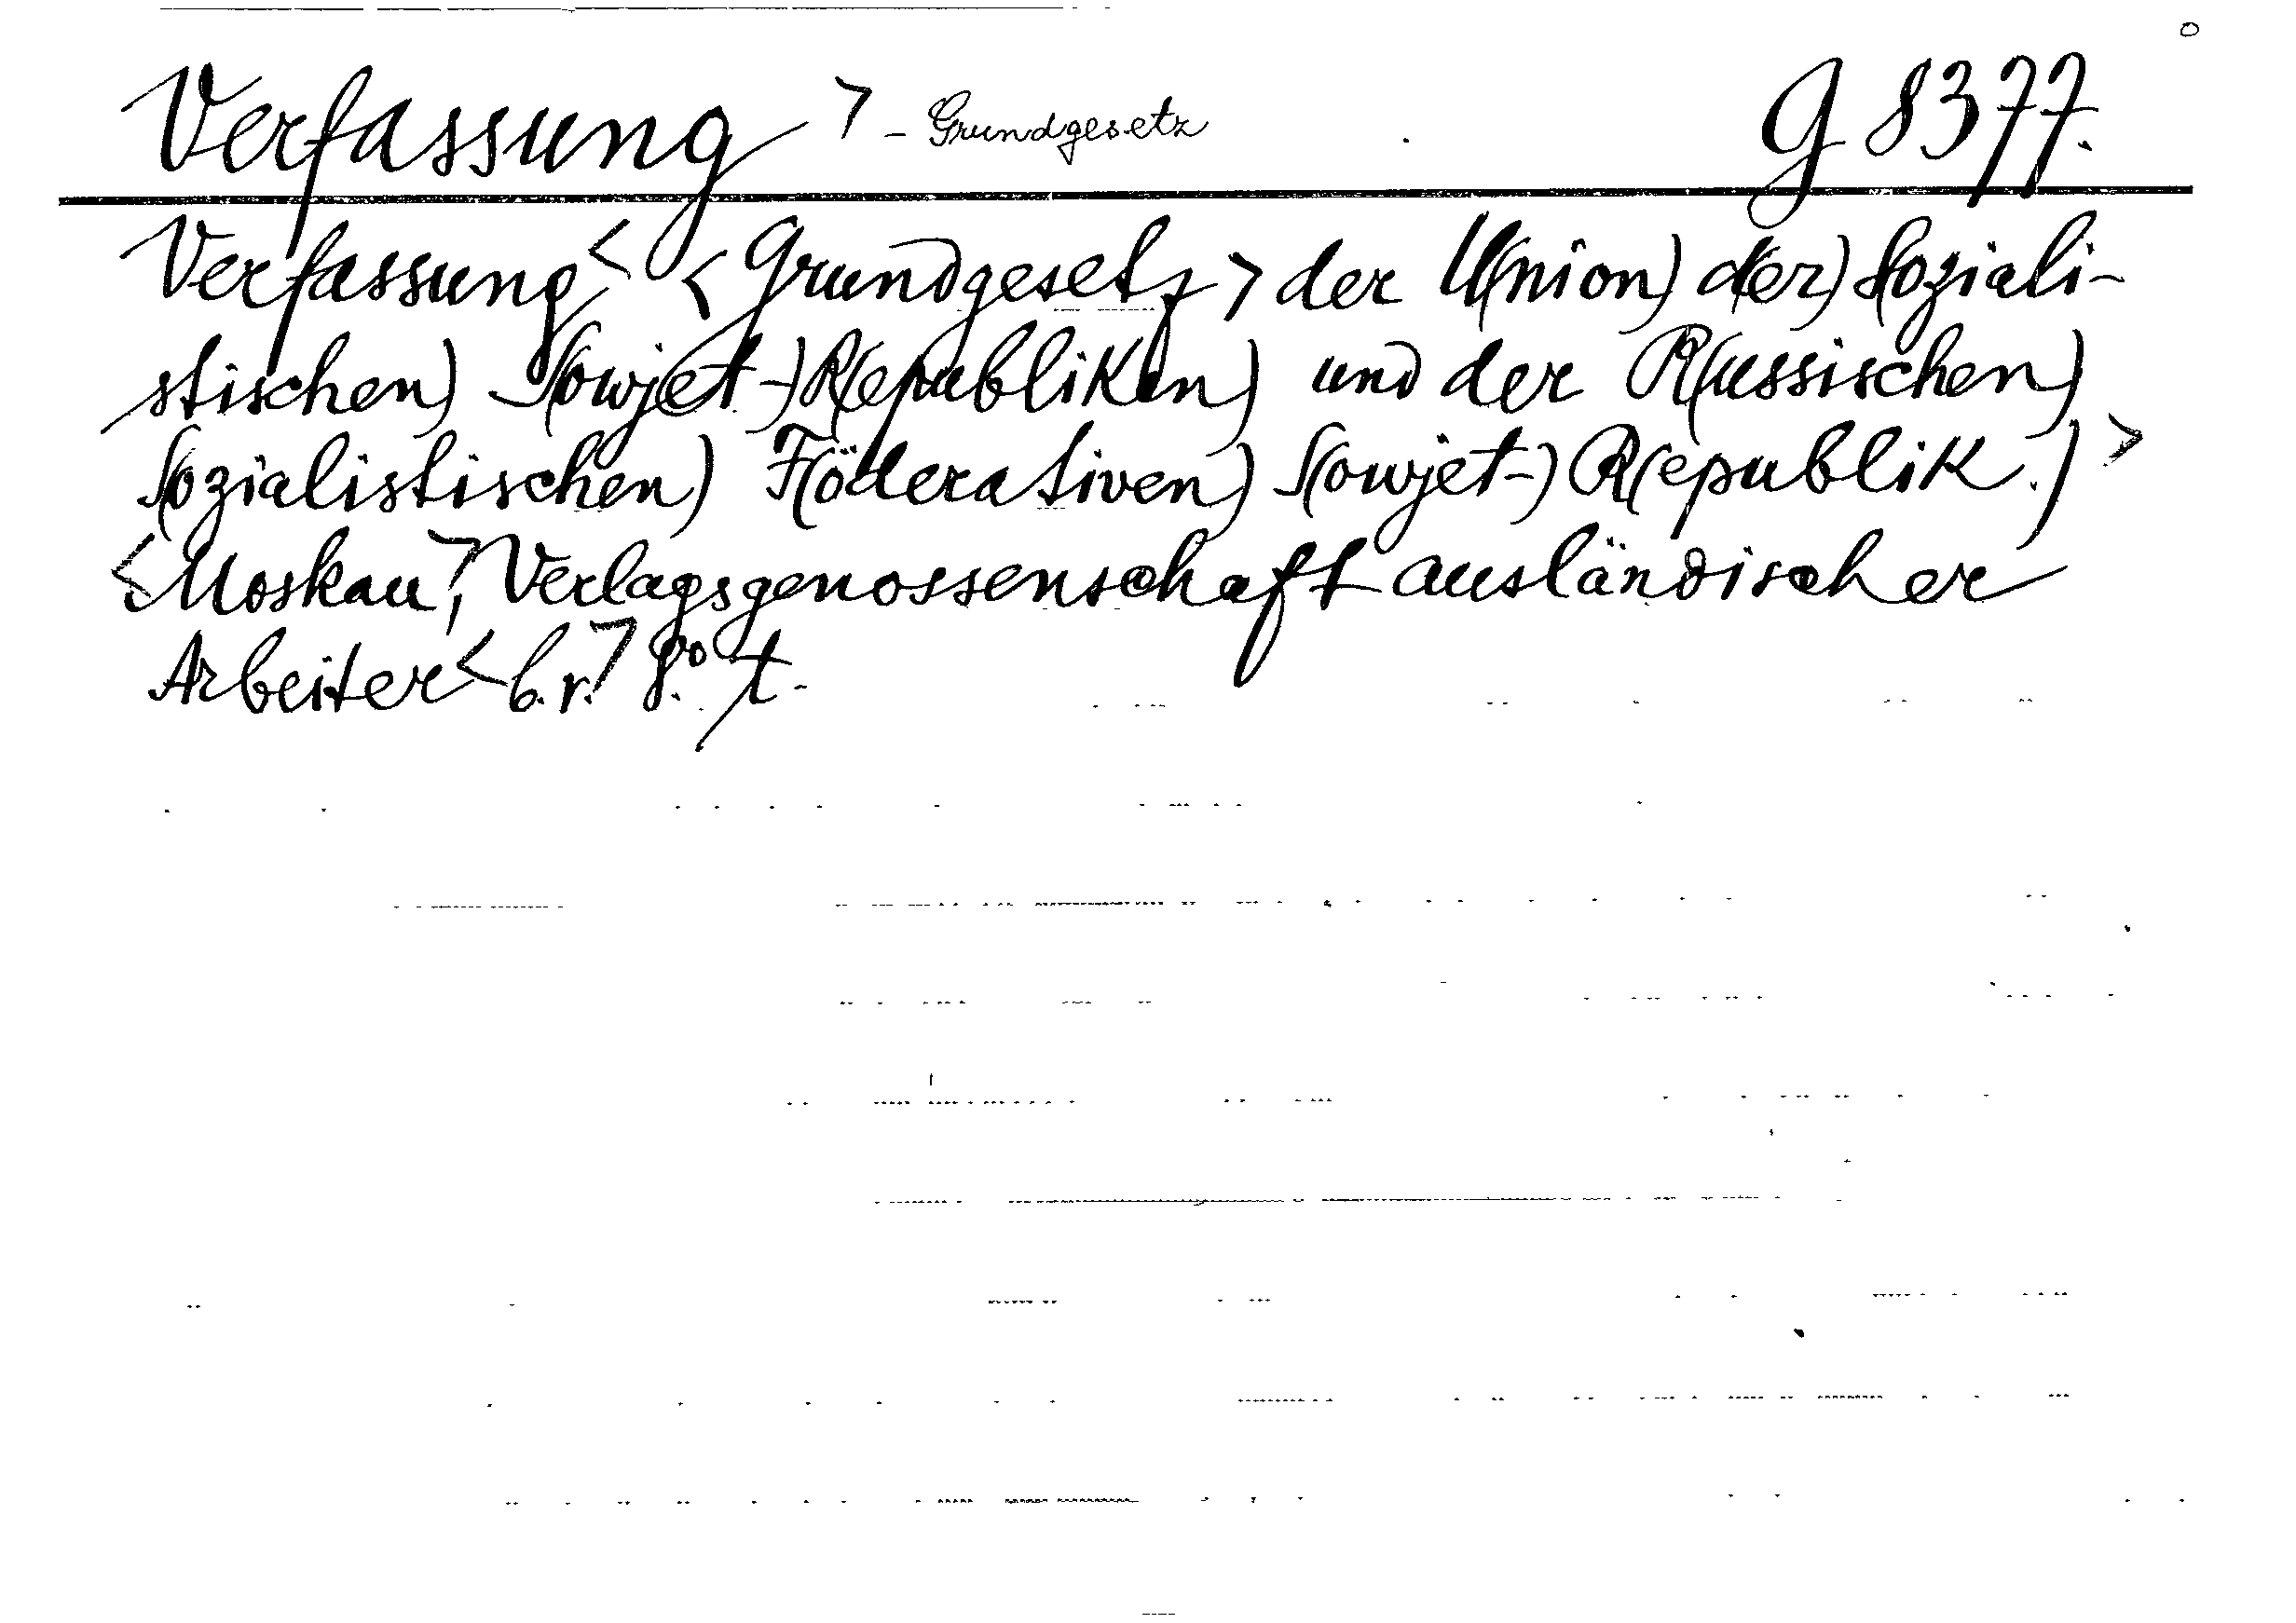 Verfassung > - Grundgesetz G 8377.
Verfassung < < Grundgesetz > der U(nion) d(er) S(oziali-
stischen) S(owjet-)R(epubliken) und der R(ussischen)
S(ozialistischen) F(öderativen) S(owjet-) R(epublik.) >
<Moskau>, Verlagsgenossenschaft ausländischer
Arbeiter <b.r.> 8.° t.